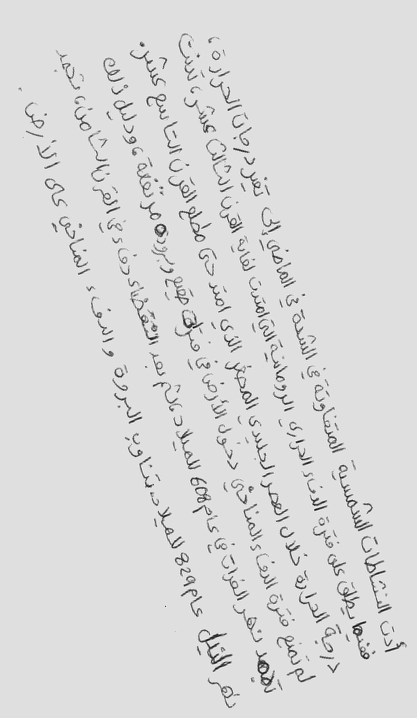 أدت النشاطات الشمسية المتفاوتة في الشدة في الماضي إلى تغير درجات الحرارة،
ففيما يطلق على فترة الدفء الحراري الرومانية التي امتدت لغاية القرن الثالث عشر، تدنت
درجة الحرارة خلال العصر الجليدي المصغر الذي امتد حتى مطلع القرن التاسع عشر.
لم تمنع فترة الدفء المناخي دخول الأرض في فترات صقيع وبرودة مرتفعة، ودليل ذلك
تجمد نهر الفرات في عام 608 للميلاد، ثم بعد انقضاء دفء في القرن الثامن، تجمد
نهر النيل عام 829 للميلاد، تناوب البرودة والدفء المناخي على الأرض.